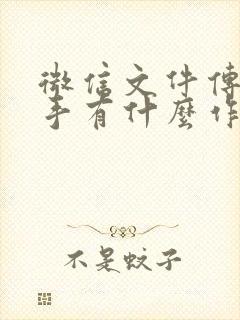 微信文件傳
手有什麼作
不是蚊子